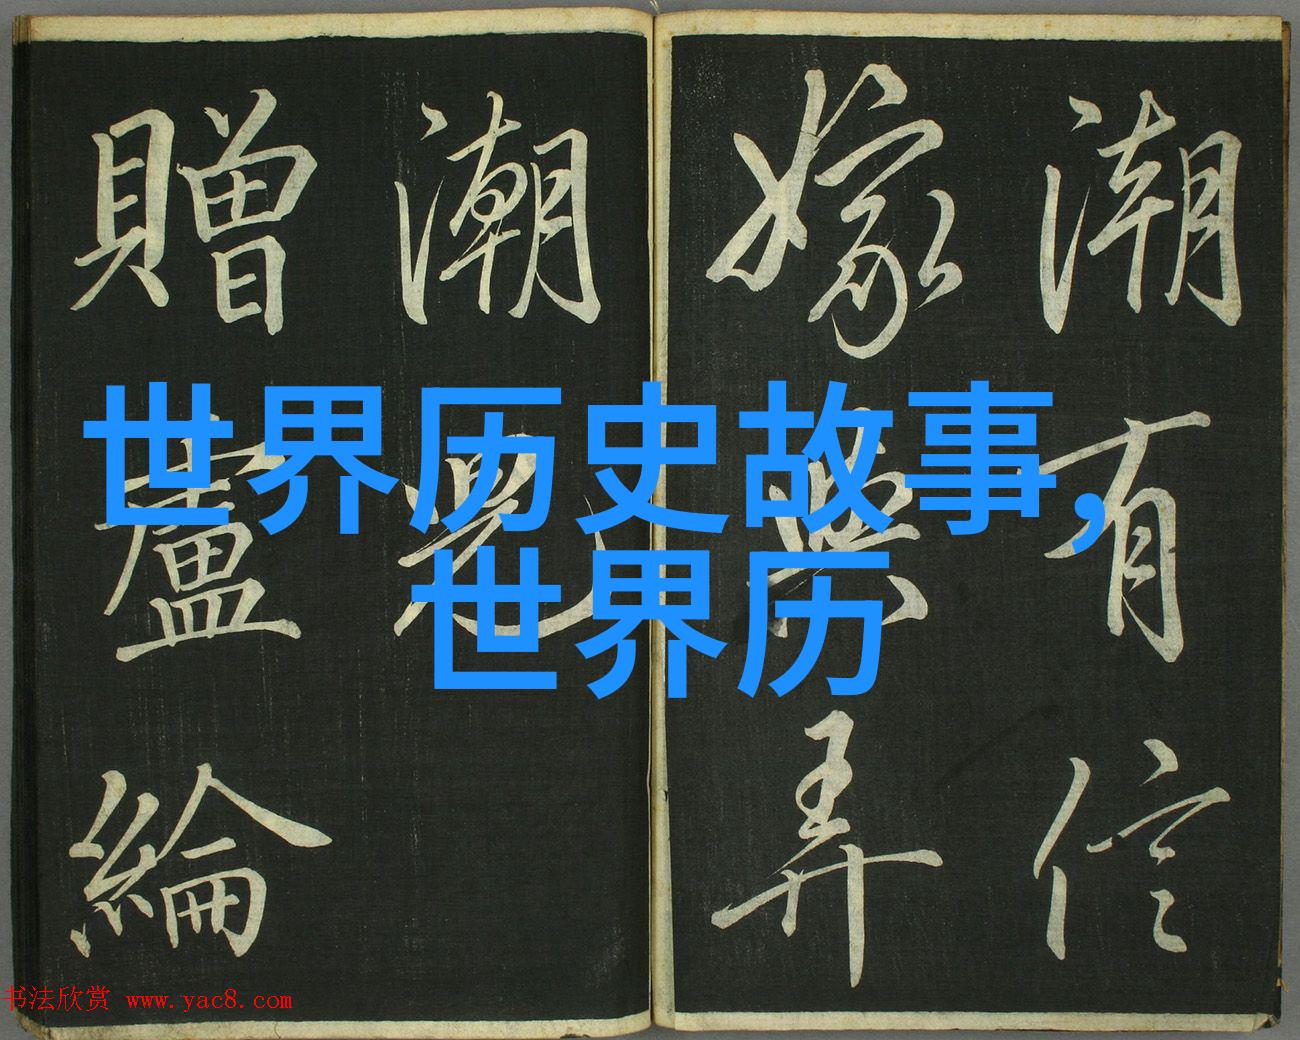 潮有信
嫁與弄
潮兒
贈盧綸
世界历史故事,
世界历
书法欣赏 www.yac8.com